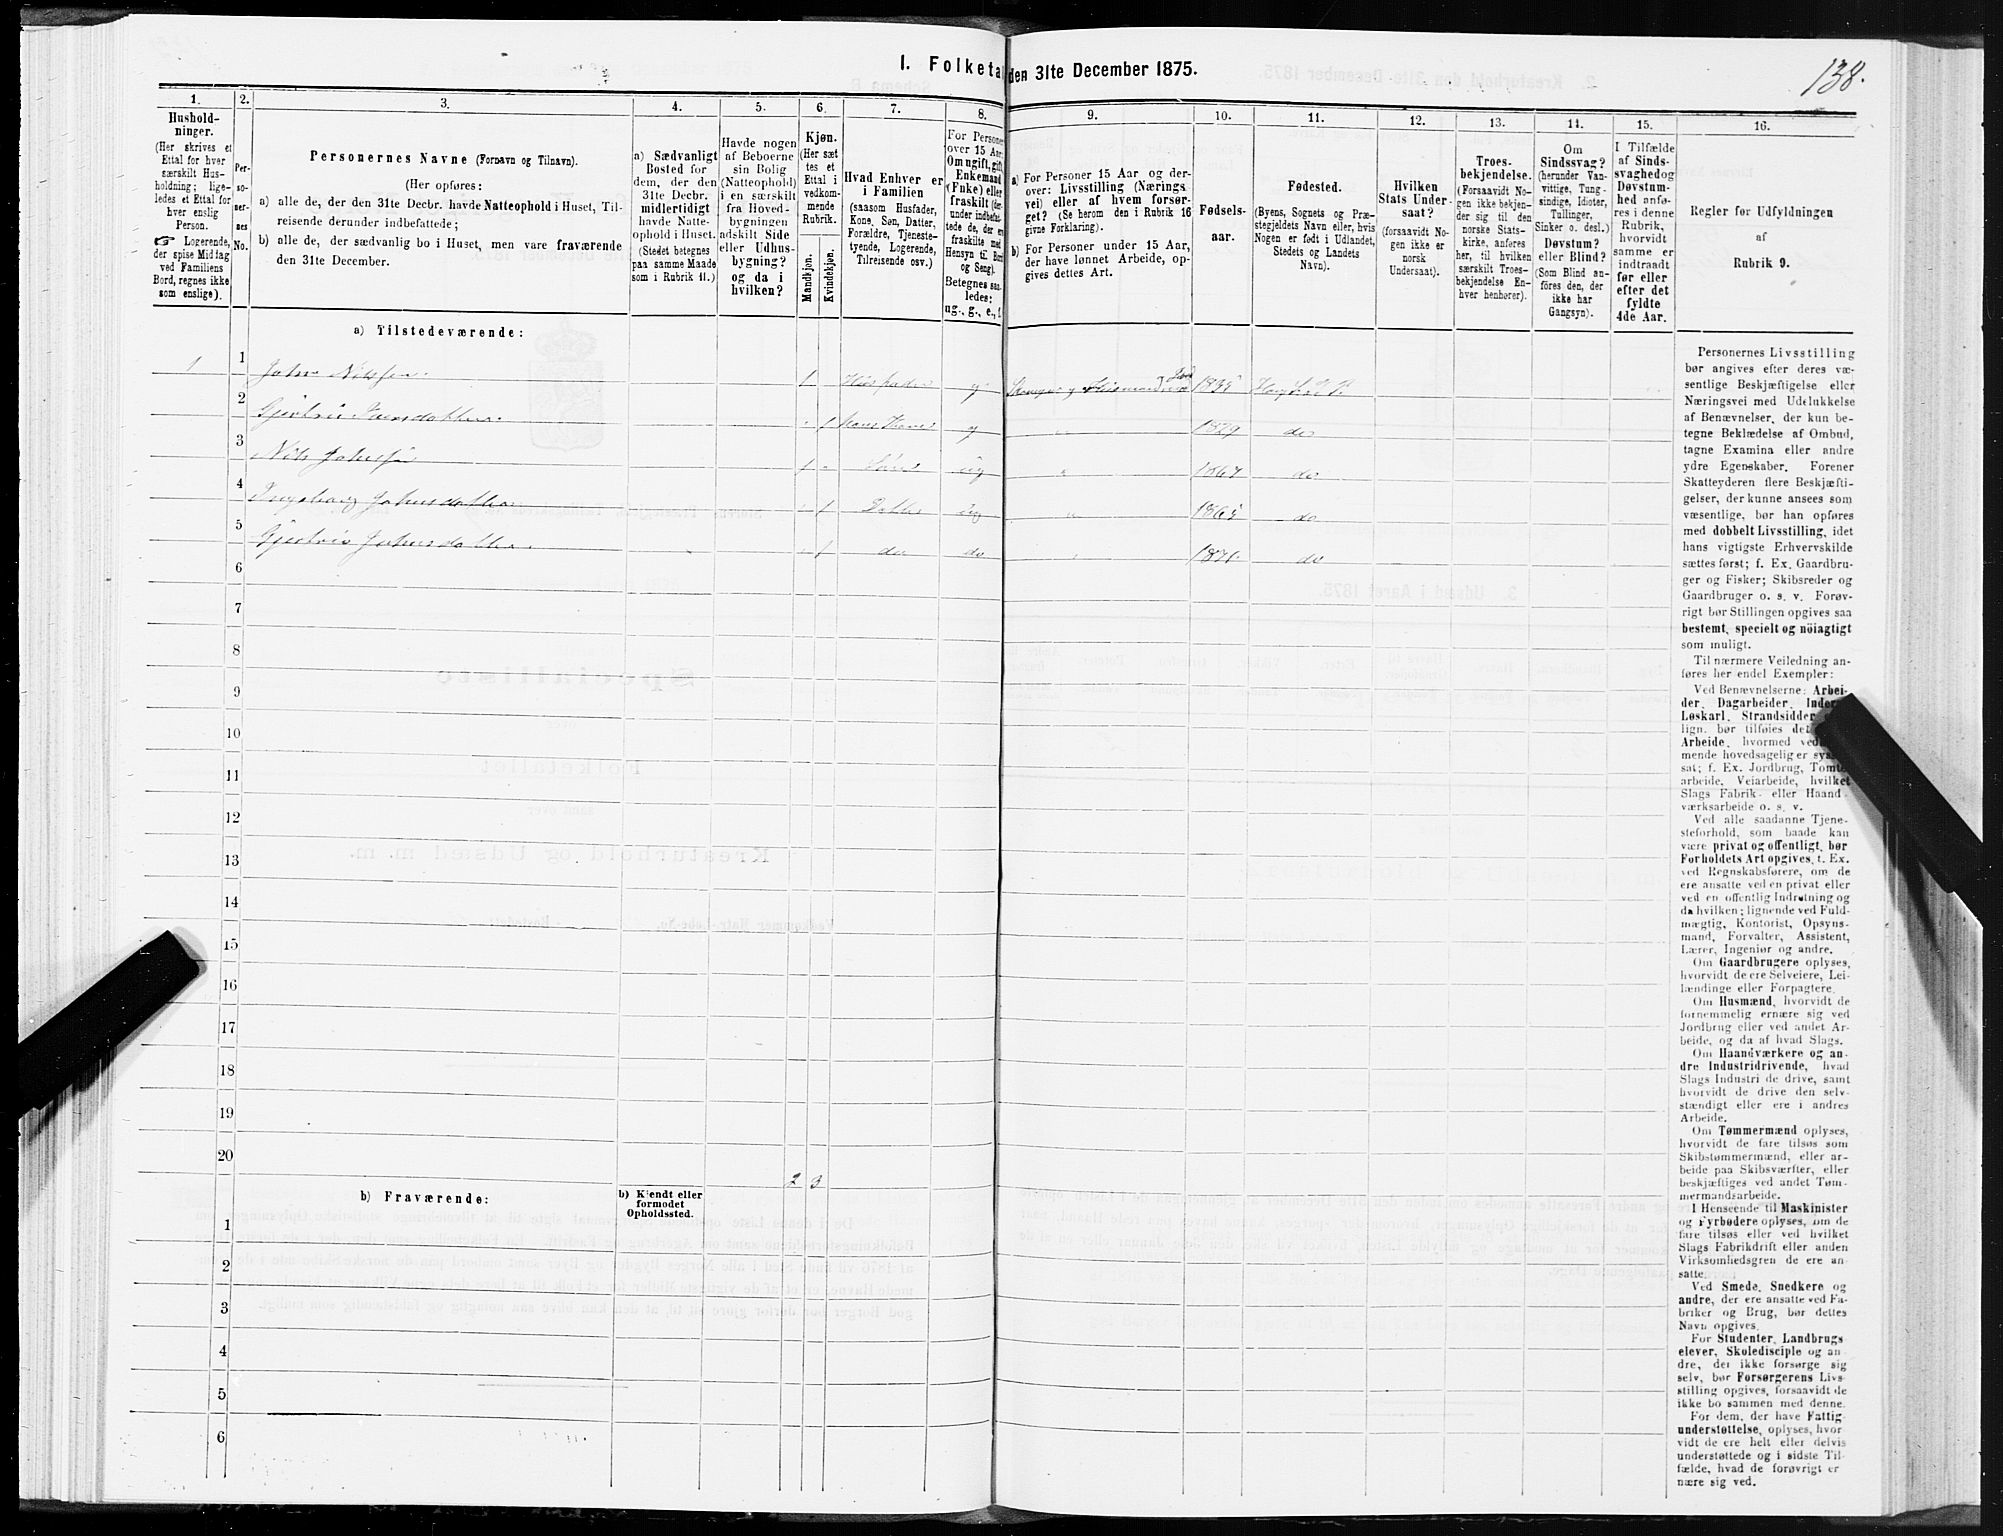 138.
I. Folketa den 31te December 1875.
1.
Hushold-
ninger.
(Her skrives et
Ettal for hver
særskilt Hus-
holdning; lige-
ledes et Ettal for
hver enslig
Person.
☞ Logerende,
der spise Middag
ved Familiens
Bord, regnes ikke
som enslige).
2.
Per-
so-
ner-
nes
No.
3.
Personernes Navne (Fornavn og Tilnavn).
(Her opføres:
a) alle de, der den 31te Decbr. havde Natteophold i Huset, Til-
reisende derunder indbefattede;
b) alle de, der sædvanlig bo i Huset, men vare fraværende
den 31te December.
4.
a) Sædvanligt
Bosted for
dem, der den
31te Decbr.
midlertidigt
havde Natte-
ophold i Huset.
(Stedet betegnes
paa samme Maade
som i Rubrik 11.)
5.
Havde nogen
af Beboerne
sin Bolig
(Natteophold)
i en særskilt
fra Hoved-
bygningen
adskilt Side
eller Udhus-
bygning?
og da i
hvilken?
6.
Kjøn.
(Her sæt
tes et
Ettal i
vedkom-
mende
Rubrik.
Mandkjøn.
Kvindekjøn.
7.
Hvad Enhver er
i Familien
(saasom Husfader,
Kone, Søn, Datter,
Forældre, Tjeneste-
tyende, Logerende,
Tilreisende osv.)
8.
For Persone
over 15 Aar:
Om ugift, gift,
Enkemand
(Enke) eller
fraskilt (der-
under indbefat-
tede de, der er
fraskilte med
Hensyn til Bord
og Seng).
Betegnes saa-
ledes:
ug., g., e., f.
9.
a) For Personer 15 Aar og der-
over: Livsstilling (Nærings
vei) eller af hvem forsør-
get? (Se herom den i Rubrik 16
givne Forklaring).
b) For Personer under 15 Aar,
der have lønnet Arbeide, op-
gives dettes Art.
10.
Fødsels-
aar.
11.
Fødested.
(Byens, Sognets og Præ-
stegjeldets Navn eller, hvis
Nogen er født i Udlandet,
Stedets og Landets
Navn).
12.
Hvilken
Stats Under-
saat?
(forsaavidt No-
gen ikke er
norsk
Undersaat).
13.
Troes-
bekjendelse.
(Forsaavidt No-
gen ikke bekjen-
der sig til den
norske Stats-
kirke, anføres
her, til hvilken
særskilt Troes-
bekjendelse En-
hver henhører).
14.
Om
Sindssvag?
(herunder Van-
vittige, Tung-
sindige, Idioter,
Tullinger,
Sinker o. desl.)
Døvstum?
eller Blind?
(Som Blind an-
føres den, der
ikke har
Gangsyn).
15.
I Tilfælde
af Sinds-
svaghed og
Døvstum-
hed anfø-
res i denne
Rubrik,
hvorvidt
samme er
indtraadt
før eller
efter det
fyldte
4de Aar.
16.
Regler for Udfyldningen
af
Rubrik 9.
a) Tilstedeværende:
1 1 John Nilssen 1 Husfader g 1835
2 Gjertrud 1 Hans Kone g " 1829 do
3 Nils Johnssen 1 Søn ug " 1867 do
4 Ingeborg Johnsdatter 1 Datter ug " 1865 do
5 Johnsdatter 1 do do " 1871 do
6
7
8
9
10
11
12
13
14
15
16
17
18
19
20
2 3
b) Fraværende:
b) Kjendt eller
formodet
Opholdssted.
1
2
3
4
5
6
Personernes Livsstilling
bør angives efter deres væ-
sentlige Beskjæftigelse eller
Næringsvei med Udelukkelse
af Benævnelser, der kun be-
tegne Beklædelse af Ombud,
tagne Examina eller andre
ydre Egenskaber. Forener
Skatteyderen flere Beskjæfti-
gelser, der kunne ansees som
væsentlige, bør han opføres
med dobbelt Livsstilling, idet
hans vigtigste Erhvervskilde
sættes først; f. Ex. Gaardbru-
ger og Fisker; Skibsreder og
Gaardbruger o. s. v. Forøv-
rigt bør Stillingen opgives saa
bestemt, specielt og nöiagtigt
som muligt.
Til nærmere Veiledning an-
føres her endel Exempler:
Ved Benævnelserne: Arbei-
der, Dagarbeider, Inder
Løskarl, Strandsidder
lign. bør tilføies det
Arbeide, hvormed ved
mende hovedsagelig er sys
sat; f. Ex. Jordbrug, Tomt
arbeide, Veiarbeide, hvilket
Slags Fabrik- eller Haand-
værksarbeide o. s. v.
Ved alle saadanne Tjene-
steforhold, som baade kan
være privat og offentligt, bør
Forholdets Art opgives, t. Ex.
ved Regnskabsførere, om de
ere ansatte ved en privat eller
ved en offentlig Indretning og
da hvilken; lignende ved Fuld-
mægtig, Kontorist, Opsyns-
mand, Forvalter, Assistent,
Lærer, Ingeniør og andre.
Om Gaardbrugere oplyses,
hvorvidt de ere Selveiere, Lei-
lændinge eller Forpagtere.
Om Husmænd, hvorvidt de
fornemmelig ernære sig ved
Jordbrug eller ved andet Ar-
beide, og da af hvad Slags.
Om Haandværkere og an-
dre Industridrivende, hvad
Slags Industri de drive, samt
hvorvidt de drive den selv-
stændigt eller ere i andres
Arbeide.
Om Tømmermænd oplyses,
hvorvidt de fare tilsøs som
Skibstømmermænd, eller ar-
beide paa Skibsværfter, eller
beskjæftiges ved andet Tøm-
mermandsarbeide.
I Henseende til Maskinister
og Fyrbødere oplyses, om de
fare tilsøs eller ved hvilket
Slags Fabrikdrift eller anden
Virksomhedsgren de ere an-
satte.
Ved Smede, Snedkere og
andre, der ere ansatte ved Fa-
briker og Brug, bør dettes
Navn opgives.
For Studenter, Landbrugs
elever, Skoledisciple og an
dre, der ikke forsørge sig
selv, bør Forsørgerens Livs-
stilling opgives, forsaavidt de
ikke bo sammen med denne.
For dem, der have Fattig-
understøttelse, oplyses, hvor
vidt de ere helt eller delvis
understøttede og i sidste Til-
fælde, hvad de forøvrigt er
nære sig ved.